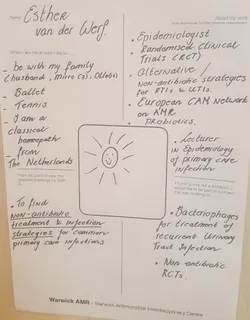 Name: Esther
van der Werf.
When I am not at work I like to:
- be with my family
(husband, micro (5), Olivia)
- Ballet
- Tennis
- I am a
classical
homeopath
- from
The Netherlands
- To find
non-antibiotic
treatment & infection
strategies for common
primary care infections
About my work
• Epidemiologist
• Randomised Clinical
Trials (RCT)
• Alternative /
Non-antibiotic strategies
for RTIs & UTIs.
• European CAM Network
on AMR
• PROBIOTICS.
• Lecturer
in Epidemiology
of primary care
infection
• Bacteriophages
for treatment of
recurrent Urinary
Tract Infection
• Non antibiotic
RCTs.
Warwick AMR - Warwick Antimicrobial Interdisciplinary Centre